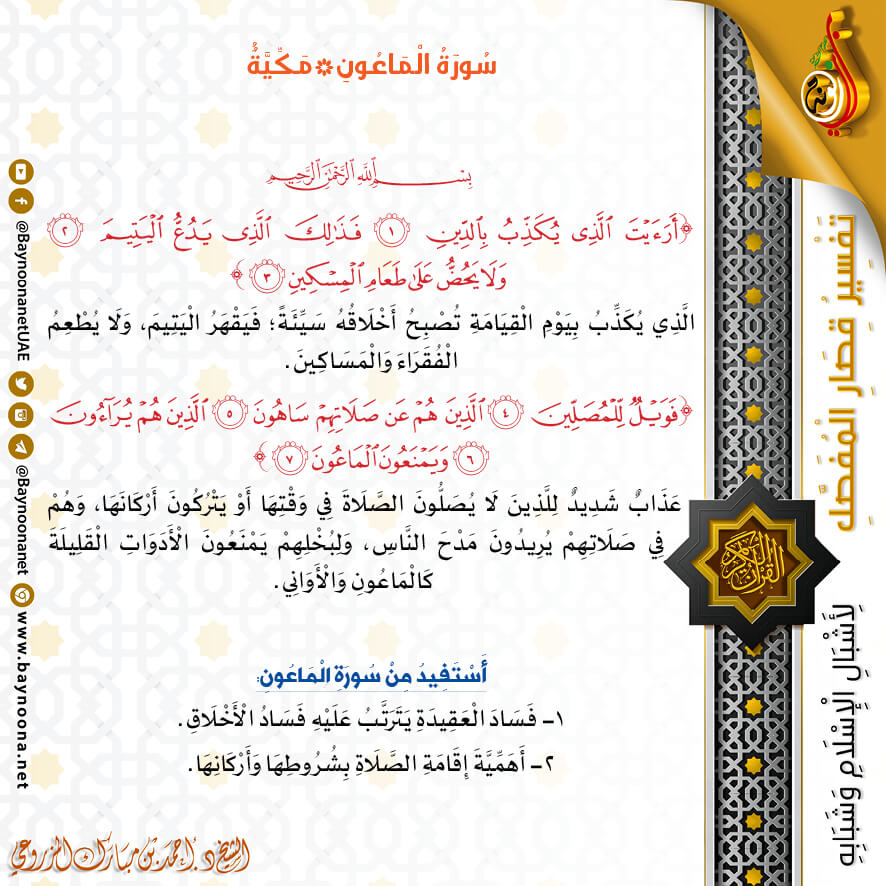 سُورَةُ الْمَاعُونِ * مَكِّيَّةٌ
بِسْمِ اللَّهِ الرَّحْمَٰنِ الرَّحِيمِ
﴿أَرَءَيْتَ ٱلَّذِى يُكَذِّبُ بِٱلدِّينِ ١ فَذَٰلِكَ ٱلَّذِى يَدُعُّ ٱلْيَتِيمَ ٢
وَلَا يَحُضُّ عَلَىٰ طَعَامِ ٱلْمِسْكِينِ ٣﴾
الَّذِي يُكَذِّبُ بِيَوْمِ الْقِيَامَةِ تُصْبِحُ أَخْلَاقُهُ سَيِّئَةً؛ فَيَقْهَرُ الْيَتِيمَ، وَلَا يُطْعِمُ
الْفُقَرَاءَ وَالْمَسَاكِينَ.
﴿فَوَيْلٌ لِّلْمُصَلِّينَ ٤ ٱلَّذِينَ هُمْ عَن صَلَاتِهِمْ سَاهُونَ ٥ ٱلَّذِينَ هُمْ يُرَآءُونَ
٦ وَيَمْنَعُونَ ٱلْمَاعُونَ ٧﴾
عَذَابٌ شَدِيدٌ لِلَّذِينَ لَا يُصَلُّونَ الصَّلَاةَ فِي وَقْتِهَا أَوْ يَتْرُكُونَ أَرْكَانَهَا، وَهُمْ
فِي صَلَاتِهِمْ يُرِيدُونَ مَدْحَ النَّاسِ، وَلِبُخْلِهِمْ يَمْنَعُونَ الْأَدَوَاتِ الْقَلِيلَةَ
كَالْمَاعُونِ وَالْأَوَانِي.
أَسْتَفِيدُ مِنْ سُورَةِ الْمَاعُونِ:
١- فَسَادَ الْعَقِيدَةِ يَتَرَتَّبُ عَلَيْهِ فَسَادُ الْأَخْلَاقِ.
٢- أَهَمِّيَّةَ إِقَامَةِ الصَّلَاةِ بِشُرُوطِهَا وَأَرْكَانِهَا.
الشيخ د. أحمد بن مبارك المزروعي
تَفْسِيرُ قِصَارِ الْمُفَصَّلِ
لِأَشْبَالِ الْإِسْلَامِ وَشَبَابِهِ
القرآن الكريم
بينونة
@BaynoonanetUAE
@Baynoonanet
www.baynoona.net